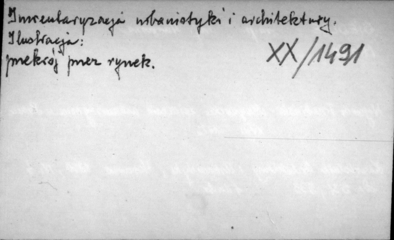 Inwentaryzacja urbanistyki i architektury.
Ilustracja:
przekrój przez rynek.
XX/1491